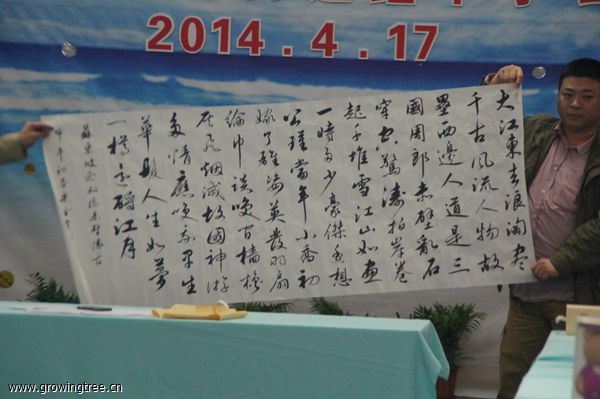 2014.4.17
大江東去浪淘盡
千古風流人物故
壘西邊人道是三
國周郎赤壁亂石
穿空驚濤拍岸卷
起千堆雪江山如畫
一時多少豪傑遥想
公瑾當年小喬初
嫁了雄姿英發羽扇
綸巾談笑間檣櫓
灰飛烟滅故國神游
多情應笑我早生
華髮人生如夢
一樽還酹江月
蘇東坡念奴嬌赤壁懷古
甲午初春
www.growingtree.cn